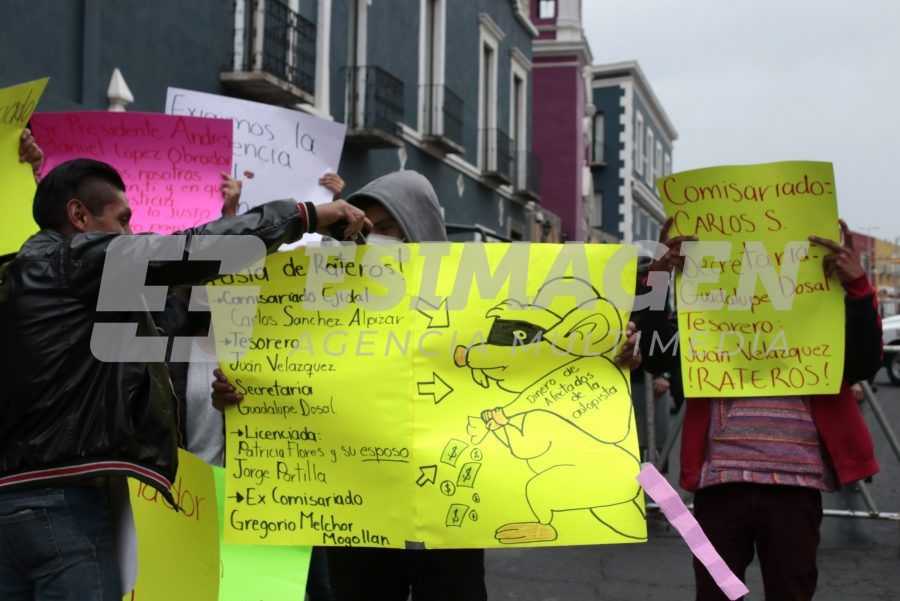 Sr Presidente Andres
Manuel Lopez Obrador
nosotros
y en
Justicia
la Justo
Exigimos la
Basta de Rateros!
→Comisariado Ejidal
Carlos Sanchez Alpizar
→Tesorero
Juan Velazquez
Secretaria
Guadalupe Dosal
→Licenciada:
Patricia Flores y su esposo
Jorge Portilla
→Ex Comisariado
Gregorio Melchor
Mogollan
Dinero de
Afectados
de la
autopista
Comisariado:
CARLOS S.
Secretaria:
Guadalupe Dosal
Tesorero:
Juan Velazquez
!RATEROS!
ESIMAGEN
AGENCIA MULTIMEDIA